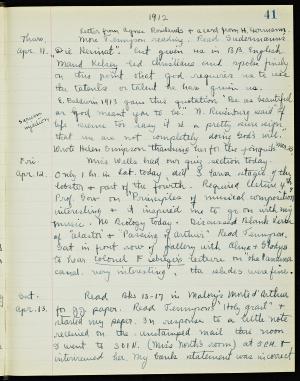 1912
41
Letter from Agnes Rowlands & a card from H. Gormann.
Thurs. More Tennyson reading. Read Sudermann's
Apr. 11. "Die Heimat". Quiz given us in B.B. English.
Maud Kelsey led Christians and spoke finely
on this point that God requires us to use
the talents or talent he has given us.
E. Baldwin 1913 gave this quotation "Be as beautiful
as God meant you to be." said if
life seems too easy it is a pretty sure sign
that we are not completely doing God's will."
Wrote Helen Simpson thanking her for the jonquils
Fri. Miss Wells had our quiz section today.
Apr. 12. Only 1 hr. in Lat. today. del. 3 larva stages of the
lobster & part of the fourth. Required lecture by
Prof. Gow on "Principles of musical composition"
interesting & it inspired me to go on with my
music. No Biology today. Discussed Blank Verse
of "Alastor" & "Passing of Arthur". Read Tennyson.
Sat in front row of gallery with Alma & Gladys
to hear Colonel F. lecture on "The Panama
Canal". very interesting. The slides were fine.
Sat. Read Bks 13-17 in Malory's Morte d'Arthur
Apr. 13. for gg paper. Read Tennyson's "Holy Grail" &
started my paper. In response to a little note
received on the unstamped mail this noon
I went to 301 N. (Miss North's room) at 5 P.M. &
interviewed her. My bank statement was incorrect